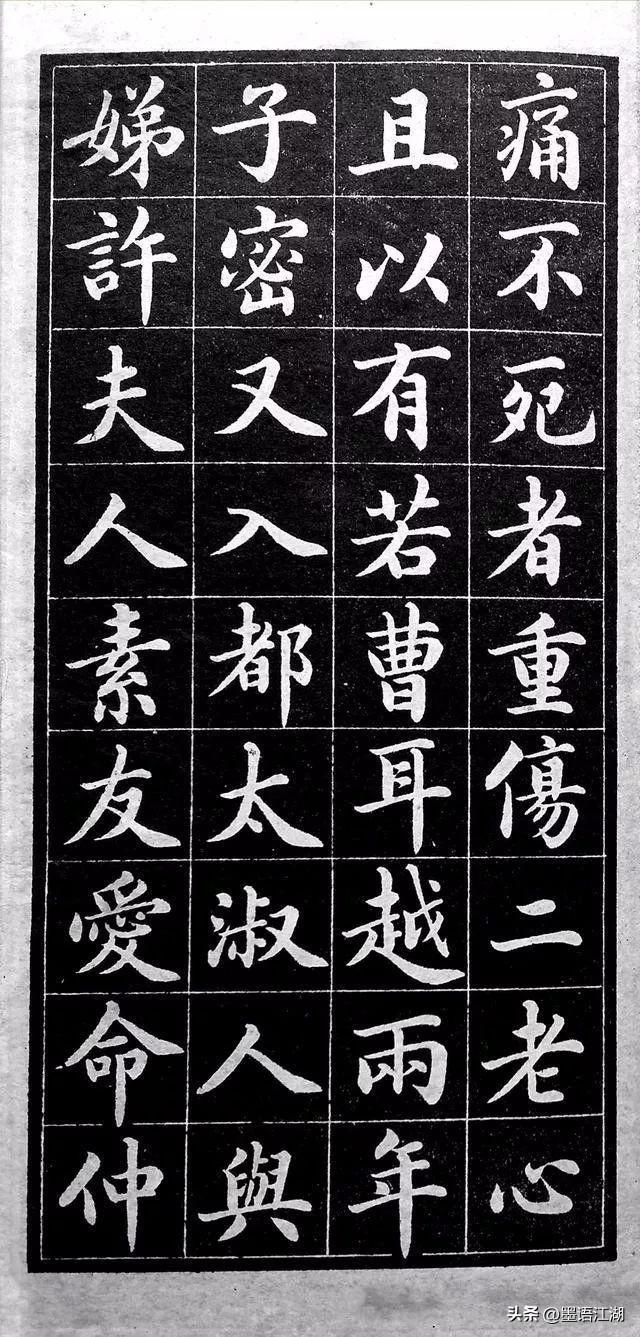 痛不死者重傷二老心
且以有若曹耳越兩年
子密又入都太淑人與
娣許夫人素友愛命仲
头条 @墨语江湖